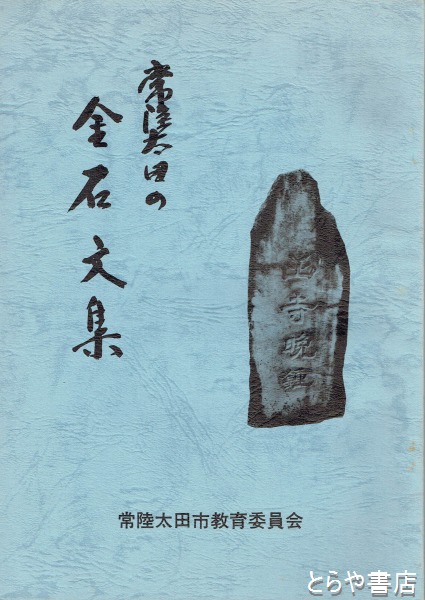 常陸太田の
金石文集
山寺晩鐘
常陸太田市教育委員会
とらや書店